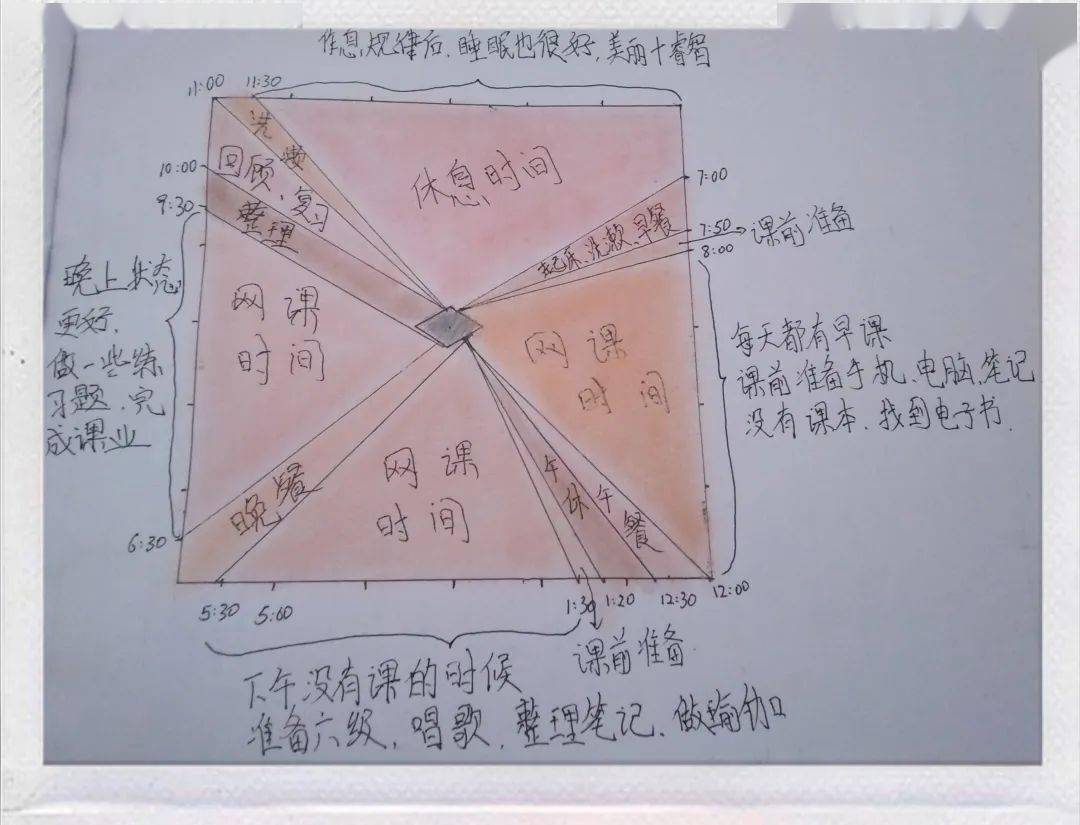 作息规律后、睡眠也很好,美丽十睿智
11:00
11:30
洗漱
回顾、复习
10:00
9:30
整理
休息时间
7:00
起床、洗漱、早餐
7:50
课前准备
8:00
晚上状态
更好、
做一些练
习题、完
成课业
网课
时间
网课
时间
每天都有早课
课前准备手机、电脑、笔记
没有课本、找到电子书.
网课
时间
晚餐
午休
午餐
6:30
5:30
5:00
1:30
1:20
12:30
12:00
课前准备
下午没有课的时候
准备六级,唱歌,整理笔记、做瑜伽